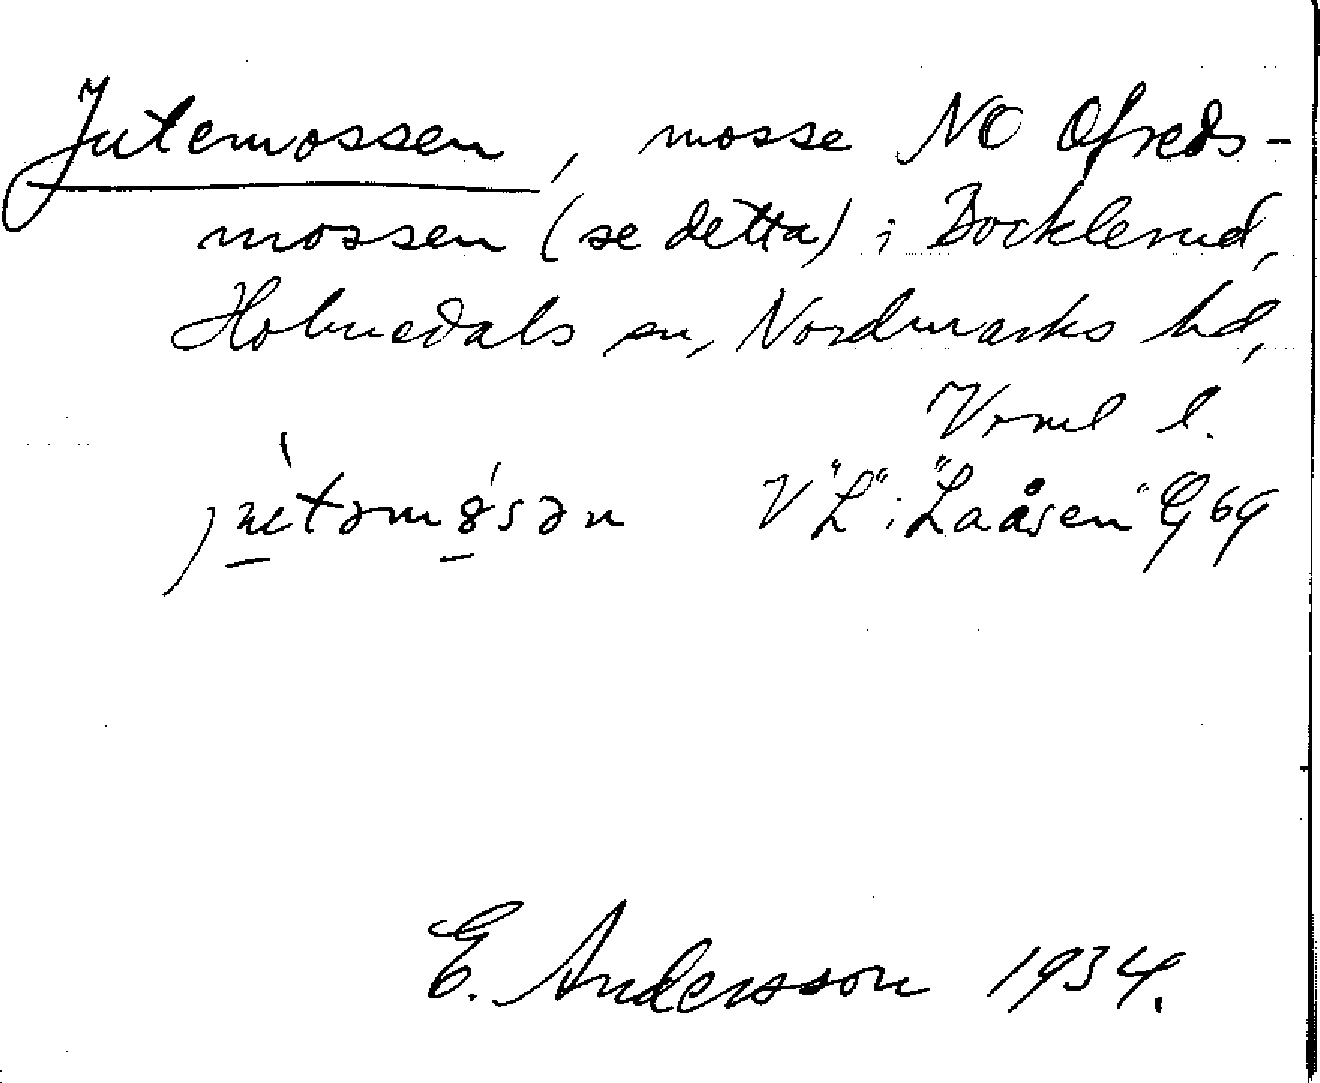 Jutemossen, mosse NO Ofreds-
mossen (se detta) i Bocklerud,
Holmedals sn, Nordmarks hd,
Verml l.
jʉ̀tamɵ́sən V "L" i "Laåsen" G 69
E. Andersson 1934.